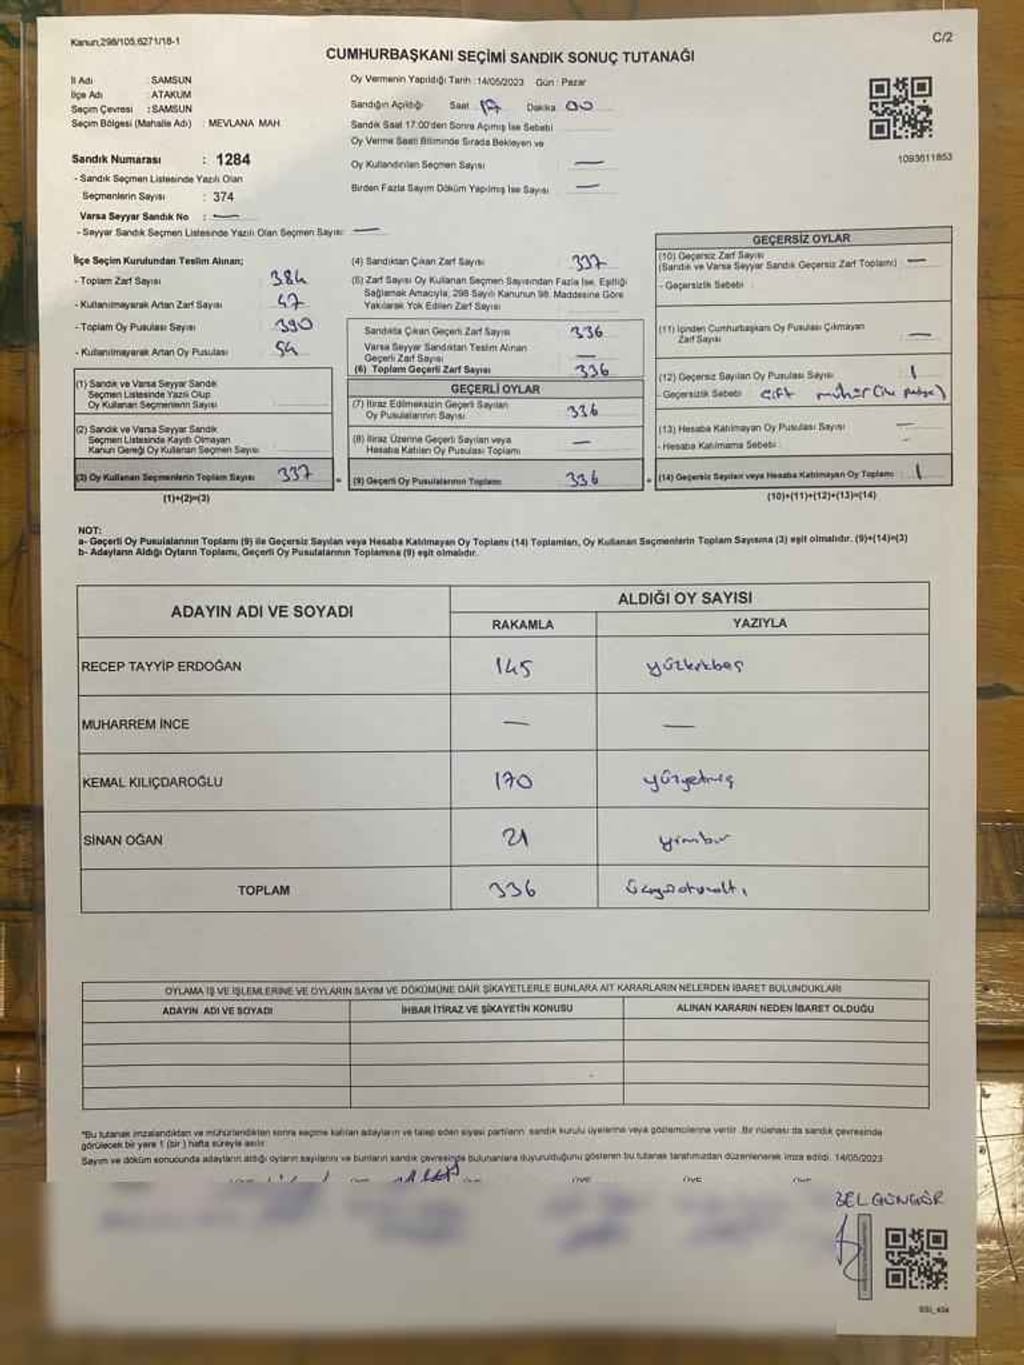 Kanun,298/105,6271/18-1
C/2
CUMHURBAŞKANI SEÇİMİ SANDIK SONUÇ TUTANAĞI
İl Adı : SAMSUN
İlçe Adı : ATAKUM
Seçim Çevresi : SAMSUN
Seçim Bölgesi (Mahalle Adı) : MEVLANA MAH
Sandık Numarası : 1284
- Sandık Seçmen Listesinde Yazılı Olan
Seçmenlerin Sayısı : 374
Varsa Seyyar Sandık No : —
- Seyyar Sandık Seçmen Listesinde Yazılı Olan Seçmen Sayısı: —
Oy Vermenin Yapıldığı Tarih : 14/05/2023 Gün : Pazar
Sandığın Açıldığı Saat 17 Dakika 00
Sandık Saat 17:00'den Sonra Açımış İse Sebebi
Oy Verme Saati Bitiminde Sırada Bekleyen ve
Oy Kullandırılan Seçmen Sayısı —
Birden Fazla Sayım Döküm Yapılmış İse Sayısı —
1093611853
İlçe Seçim Kurulundan Teslim Alınan;
- Toplam Zarf Sayısı 384
- Kullanılmayarak Artan Zarf Sayısı 47
- Toplam Oy Pusulası Sayısı 390
- Kullanılmayarak Artan Oy Pusulası 54
(1) Sandık ve Varsa Seyyar Sandık
Seçmen Listesinde Yazılı Olup
Oy Kullanan Seçmenlerin Sayısı
(2) Sandık ve Varsa Seyyar Sandık
Seçmen Listesinde Kayıtlı Olmayan
Kanun Gereği Oy Kullanan Seçmen Sayısı
(3) Oy Kullanan Seçmenlerin Toplam Sayısı 337
(1)+(2)=(3)
(4) Sandıktan Çıkan Zarf Sayısı 337
(5) Zarf Sayısı Oy Kullanan Seçmen Sayısından Fazla İse, Eşitliği
Sağlamak Amacıyla, 298 Sayılı Kanunun 98. Maddesine Göre
Yakılarak Yok Edilen Zarf Sayısı
Sandıkta Çıkan Geçerli Zarf Sayısı 336
Varsa Seyyar Sandıktan Teslim Alınan
Geçerli Zarf Sayısı —
(6) Toplam Geçerli Zarf Sayısı 336
GEÇERLİ OYLAR
(7) İtiraz Edilmeksizin Geçerli Sayılan
Oy Pusulalarının Sayısı 336
(8) İtiraz Üzerine Geçerli Sayılan veya
Hesaba Katılan Oy Pusulası Toplamı —
(9) Geçerli Oy Pusulalarının Toplamı 336
GEÇERSİZ OYLAR
(10) Geçersiz Zarf Sayısı —
(Sandık ve Varsa Seyyar Sandık Geçersiz Zarf Toplamı)
- Geçersizlik Sebebi :
(11) İçinden Cumhurbaşkanı Oy Pusulası Çıkmayan
Zarf Sayısı —
(12) Geçersiz Sayılan Oy Pusulası Sayısı 1
- Geçersizlik Sebebi çift mühür
(13) Hesaba Katılmayan Oy Pusulası Sayısı —
- Hesaba Katılmama Sebebi :
(14) Geçersiz Sayılan veya Hesaba Katılmayan Oy Toplamı : 1
(10)+(11)+(12)+(13)=(14)
NOT:
a- Geçerli Oy Pusulalarının Toplamı (9) ile Geçersiz Sayılan veya Hesaba Katılmayan Oy Toplamı (14) Toplamları, Oy Kullanan Seçmenlerin Toplam Sayısına (3) eşit olmalıdır. (9)+(14)=(3)
b- Adayların Aldığı Oyların Toplamı, Geçerli Oy Pusulalarının Toplamına (9) eşit olmalıdır.
ADAYIN ADI VE SOYADI
ALDIĞI OY SAYISI
RAKAMLA YAZIYLA
RECEP TAYYİP ERDOĞAN 145 yüzkırkbeş
MUHARREM İNCE — —
KEMAL KILIÇDAROĞLU 170 yüzyetmiş
SİNAN OĞAN 21 yirmibir
TOPLAM 336 üçyüzotuzaltı
OYLAMA İŞ VE İŞLEMLERİNE VE OYLARIN SAYIM VE DÖKÜMÜNE DAİR ŞİKAYETLERLE BUNLARA AİT KARARLARIN NELERDEN İBARET BULUNDUKLARI
ADAYIN ADI VE SOYADI İHBAR İTİRAZ VE ŞİKAYETİN KONUSU ALINAN KARARIN NEDEN İBARET OLDUĞU
*Bu tutanak imzalandıktan ve mühürlendikten sonra seçime katılan adayların ve talep eden siyasi partilerin sandık kurulu üyelerine veya gözlemcilerine verilir. Bir nüshası da sandık çevresinde
görülecek bir yere 1 (bir) hafta süreyle asılır.
Sayım ve döküm sonucunda adayların aldığı oyların sayılarını ve bunların sandık çevresinde bulunanlara duyurulduğunu gösteren bu tutanak tarafımızdan düzenlenerek imza edildi. 14/05/2023
BEL GÜNGÖR